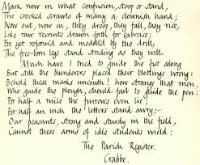 Mark now in what confusion, stoop or stand,
The crooked scrawls of many a clownish hand;
Now out, now in, they droop, they fall, they rise,
Like raw recruits drawn forth for exercise;
Ere yet reform'd and modelled by the drill,
The free-born legs stand striding as they will.
Much have I tried to guide the fist along,
But still the blunderers placed their blottings wrong:
Behold these marks uncouth! how strange that men,
Who guide the plough, should fail to guide the pen:
For half a mile the furrows even lie;
For half an inch the letters stand awry;-
Our peasants, strong and sturdy in the field,
Cannot these arms of idle students wield:
The Parish Register.
Crabbe.